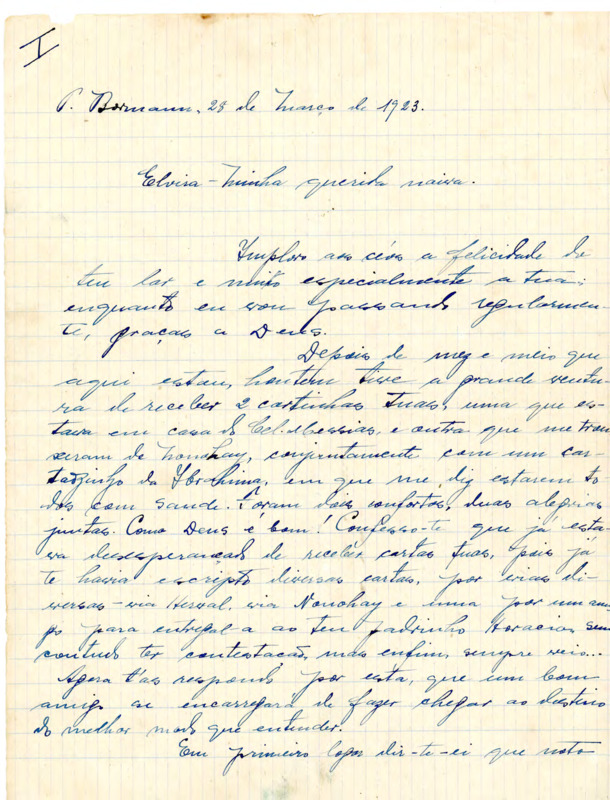 I
P. Bormann, 28 de Março de 1923.
Elvira - Minha querida noiva.
Imploro aos céos a felicidade do
teu lar e muito especialmente a tua;
enquanto eu vou passando regularmen-
te, graças a Deus.
Depois de mez e meio que
aqui estou, hontem tive a grande ventu-
ra de receber 2 cartinhas tuas, uma que es-
tava em casa do Cel. Messias, e outra que me trou-
xeram de Nonohay, conjuntamente com um car-
tãozinho da Ibrahima, em que me diz estarem to-
dos com saude. Foram dois confortos, duas alegrias
juntas. Como Deus é bom! Confesso-te que já esta-
va desesperançado de receber cartas tuas, pois já
te havia escripto diversas cartas, por vias di-
versas - via Herval, via Nonohay e uma por um ami-
go para entregal-a ao teu padrinho Horacio, sem
contudo ter contestação, mas enfim, sempre veis..
Agora t'as respondo por esta, que um bom
amigo se encarregará de fazer chegar ao destino
do melhor modo que entender.
Em primeiro logar dir-te-ei que noto